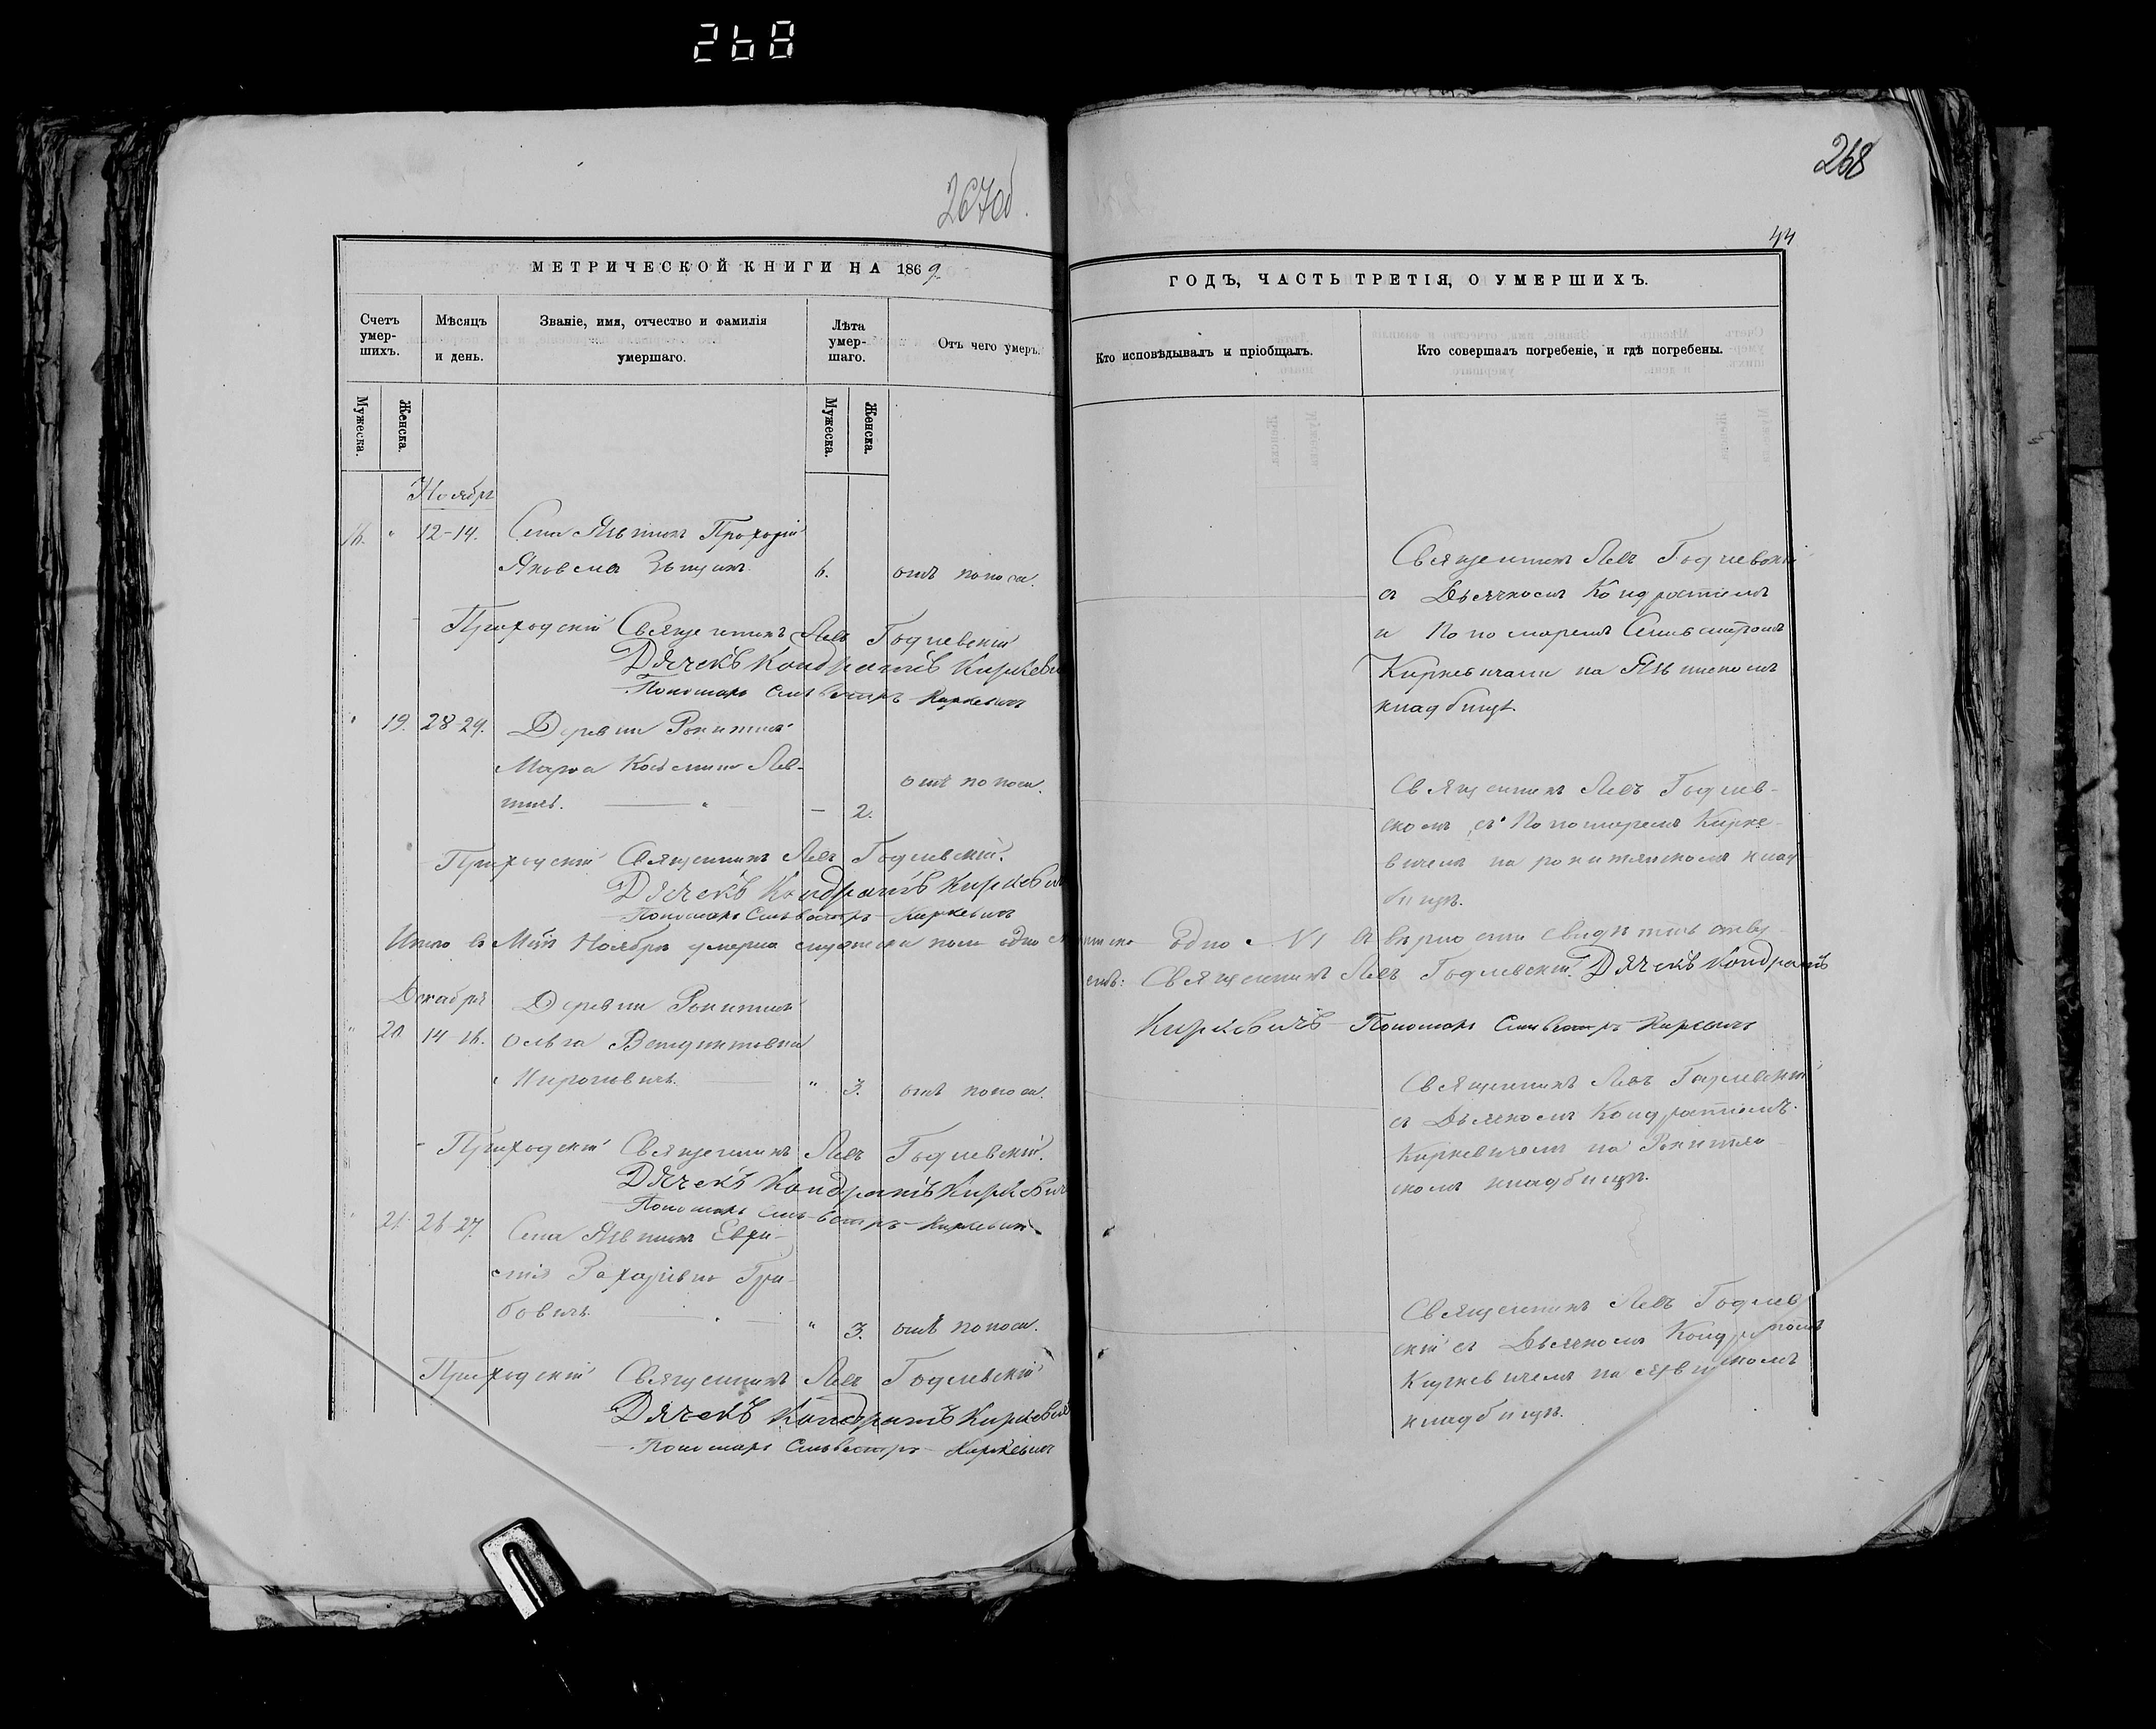 268
267об.
268
44
МЕТРИЧЕСКОЙ КНИГИ НА 1869
ГОДЪ, ЧАСТЬ ТРЕТІЯ, О УМЕРШИХЪ.
Счетъ умер-шихъ.
Мѣсяцъ и день.
Званіе, имя, отчество и фамилія умершаго.
Лѣта умер-шаго.
Отъ чего умеръ.
Кто исповѣдывалъ и пріобщалъ.
Кто совершалъ погребеніе, и гдѣ погребены.
Мужеска.
Женска.
Мужеска.
Женска.
Ноябрь
16. " 12-14. Села
Яковлевъ 6. отъ поноса.
Священникъ Левъ Годлевскій
съ Дьячкомъ Кондратіемъ
и Пономаремъ Сильвестромъ
Киркевичами на
кладбищѣ.
Приходскій Священникъ Левъ Годлевскій
Дячекъ Кондратъ Киркевичъ
Пономарь Сильвестръ Киркевичъ
" 19. 28-29. Деревни
Марѳа
" — 2. отъ поноса.
Священникъ Левъ Годлев-
скомъ съ Пономаремъ Кирке-
вичемъ на рокитянскомъ клад-
бищѣ.
Приходскій Священникъ Левъ Годлевскій.
Дячекъ Кондратъ Киркевичъ
Пономарь Сильвестръ Киркевичъ
Итого въ Мцѣ Ноябрѣ умерло мужеска пола одно женска одно
Священникъ Левъ Годлевскій. Дячекъ Кондратъ
Киркевичъ Пономарь Сильвестръ Киркевичъ
Декабрь
Деревни
" 20. 14-16. Ольга
" 3. отъ поноса.
Священникъ Левъ Годлевскій
съ Дьячкомъ Кондратіемъ
Киркевичемъ на Рокитян-
скомъ кладбищѣ.
Приходскій Священникъ Левъ Годлевскій.
Дячекъ Кондратъ Киркевичъ
Пономарь Сильвестръ Киркевичъ
" 21. 26-27. Села
Захаріева Гри-
бовичъ. " 3. отъ поноса.
Священникъ Левъ Годлев-
скій съ Дьячкомъ Кондратомъ
Киркевичемъ на
кладбищѣ.
Приходскій Священникъ Левъ Годлевскій
Дячекъ Кондратъ Киркевичъ
Пономарь Сильвестръ Киркевичъ